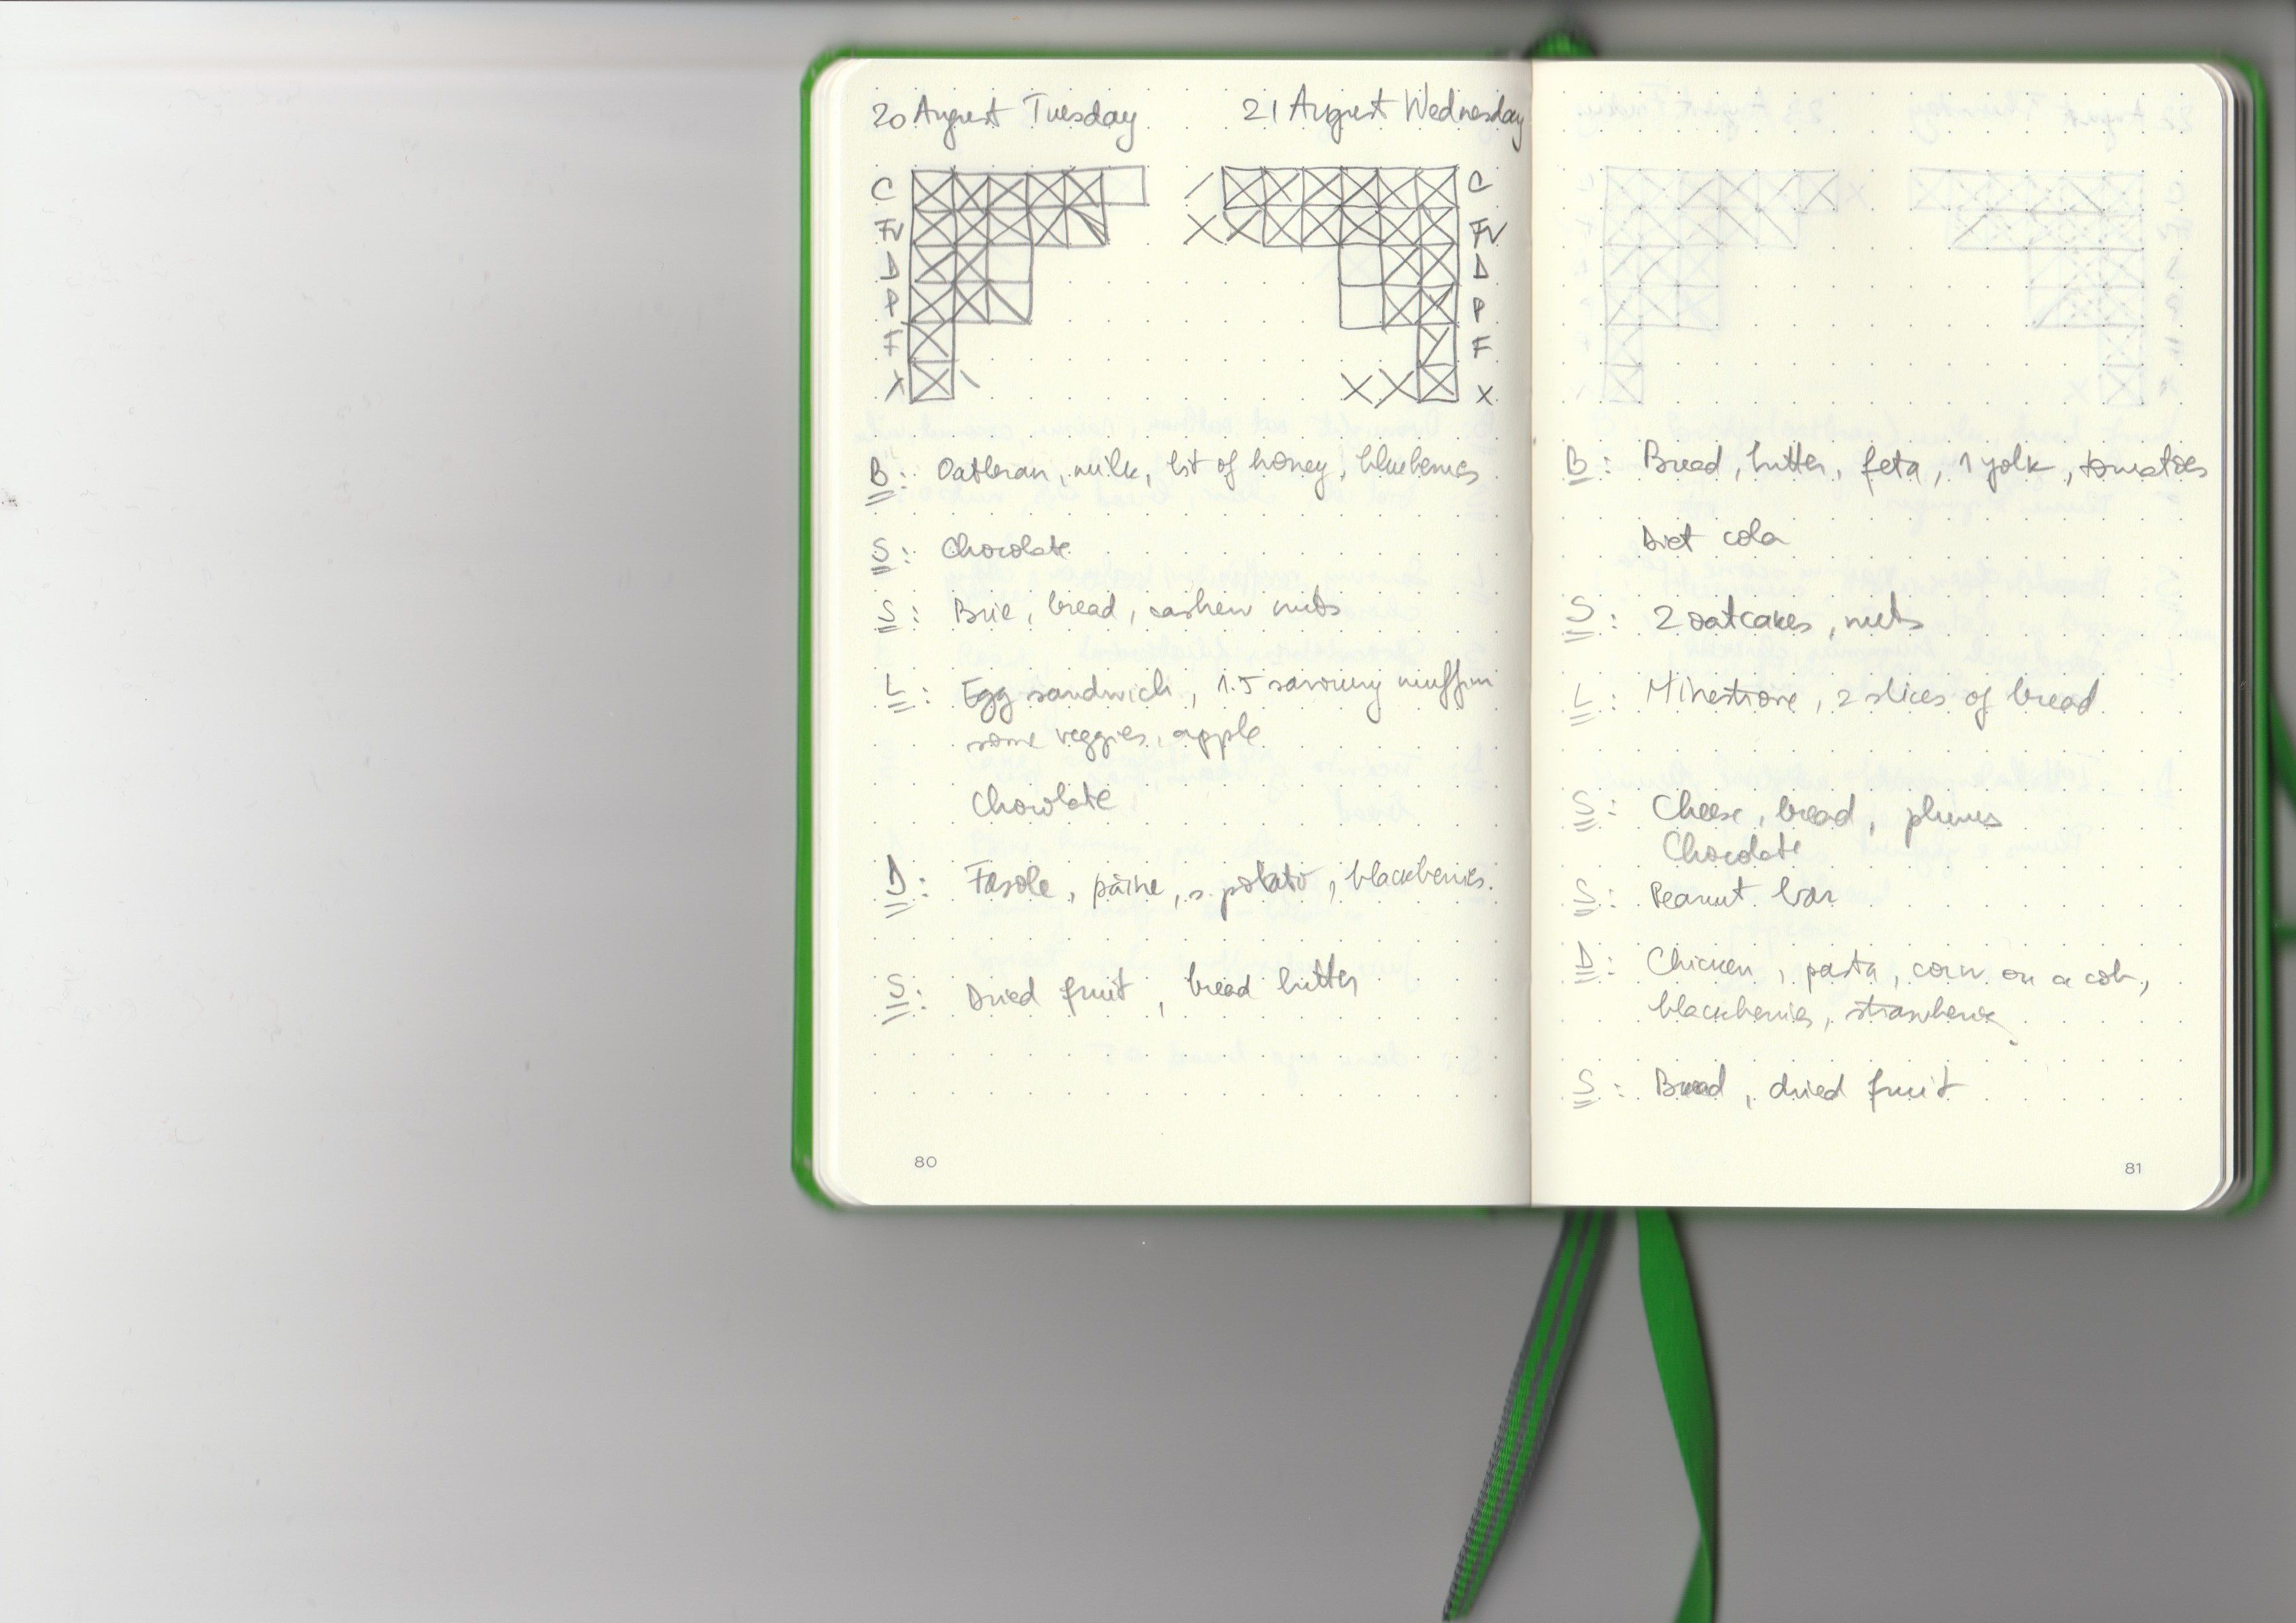 20 August Tuesday
21 August Wednesday
C
FV
D
P
F
X
C
FV
D
P
F
X
B: Oatbran, milk, bit of honey, blueberries
S: Chocolate
S: Brie, bread, cashew nuts
L: Egg sandwich, 1.5 savoury muffin
some veggies, apple
Chocolate
D: Fasole, pâine, s. potato, blackberries.
S: Dried fruit, bread butter
80
B: Bread, butter, feta, 1 yolk, tomatoes
Diet cola
S: 2 oatcakes, nuts
L: Minestrone, 2 slices of bread
S: Cheese, bread, plums
Chocolate
S: Peanut bar
D: Chicken, pasta, corn on a cob,
blackberries, strawberries
S: Bread, dried fruit
81